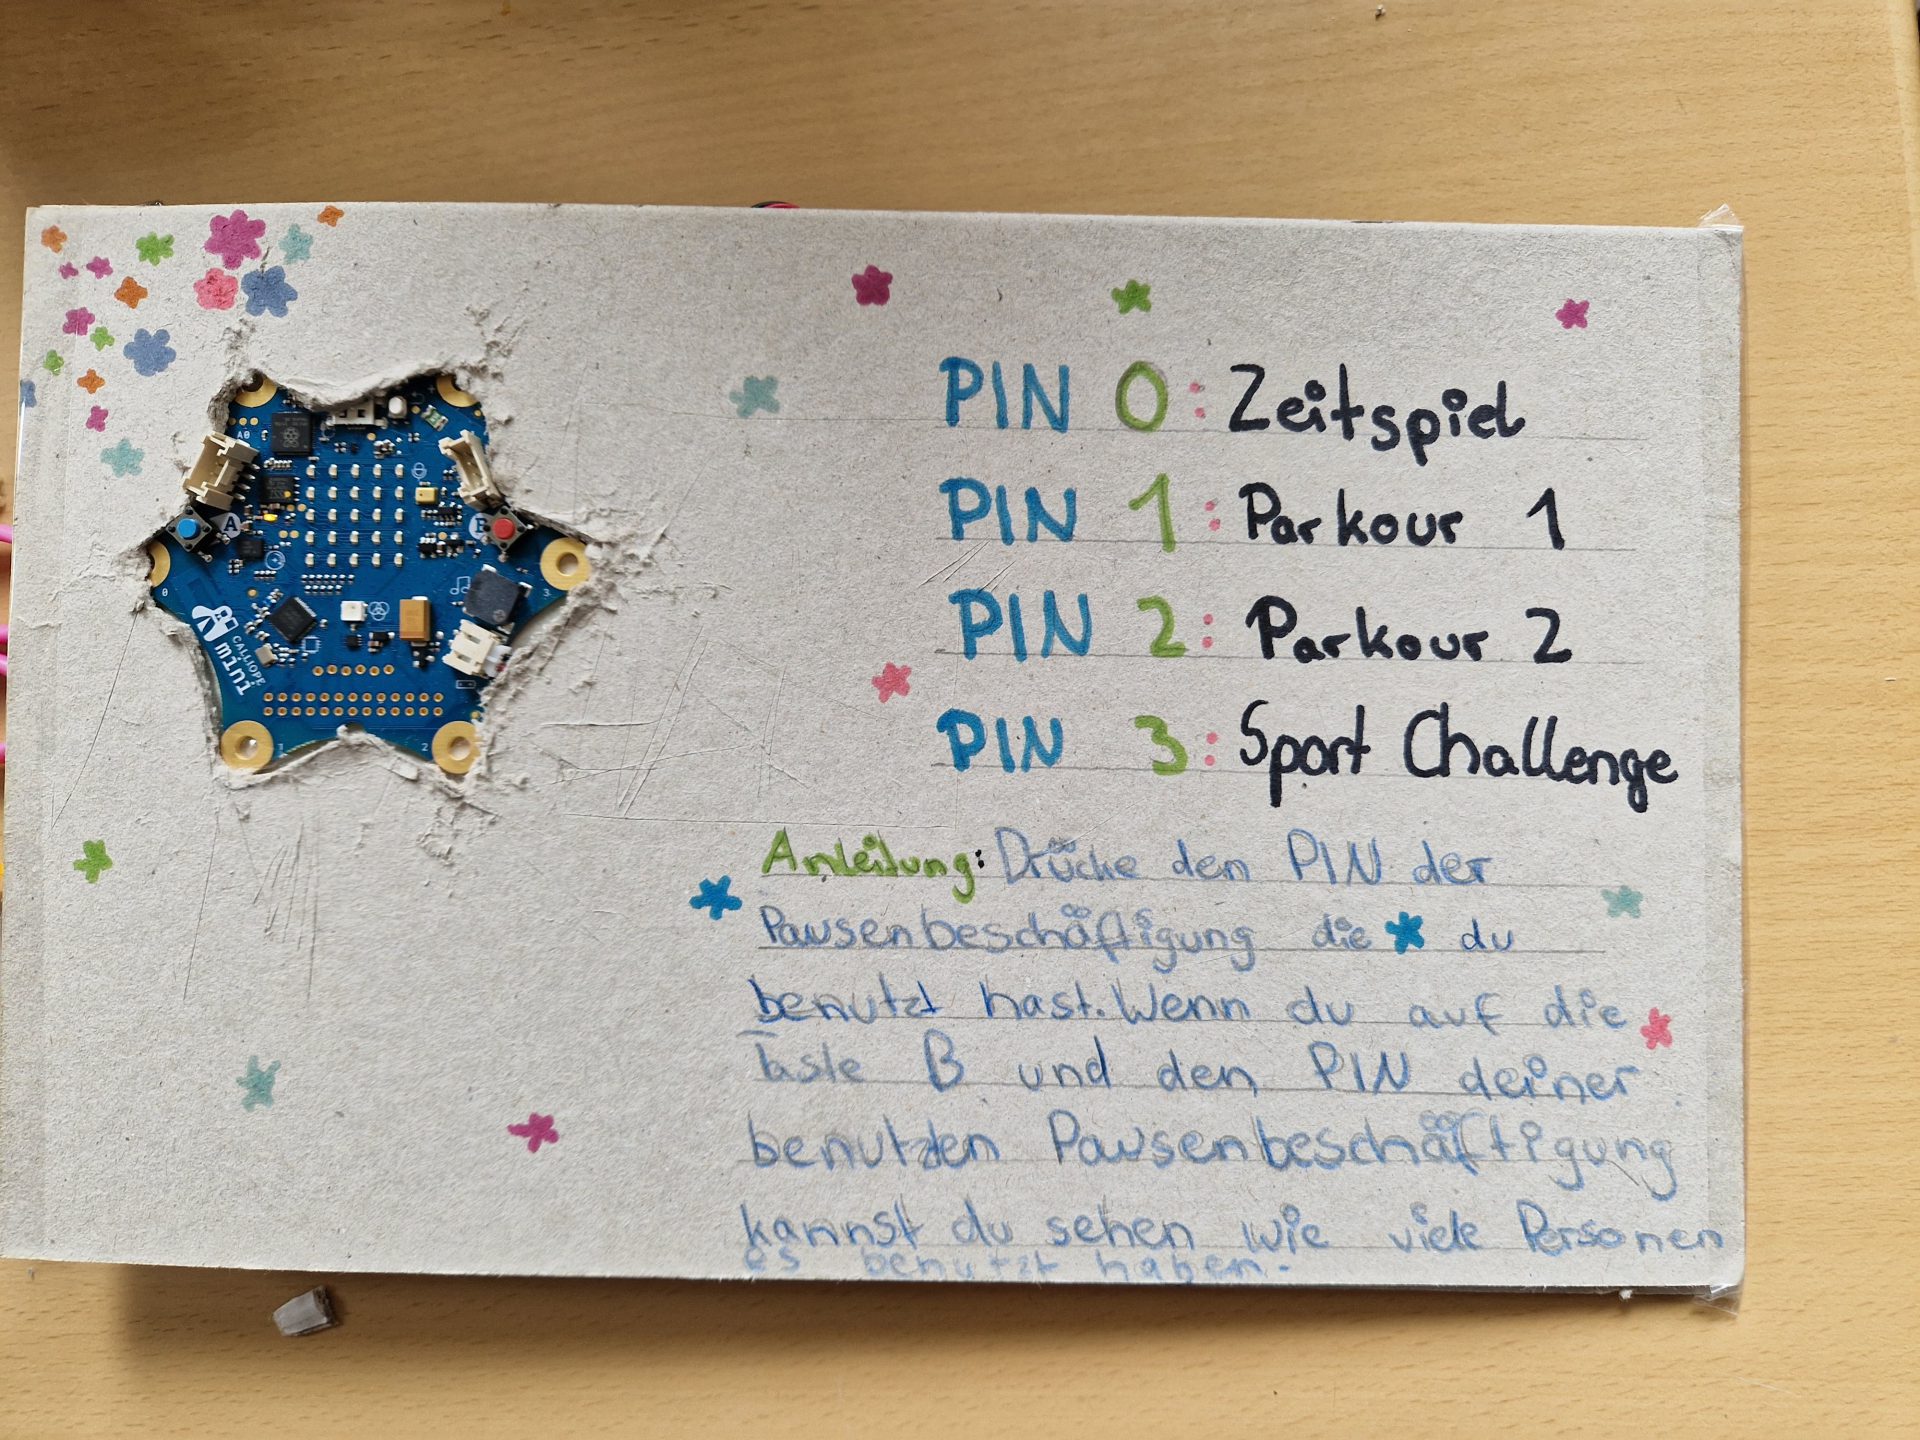 PIN 0: Zeitspiel
PIN 1: Parkour 1
PIN 2: Parkour 2
PIN 3: Sport Challenge
Anleitung: Drücke den PIN der
Pausenbeschäftigung die du
benutzt hast. Wenn du auf die
Taste B und den PIN deiner
benutzten Pausenbeschäftigung
kannst du sehen wie viele Personen
es benutzt haben.
A0
A
B
0
3
CALLIOPE
mini
1
2